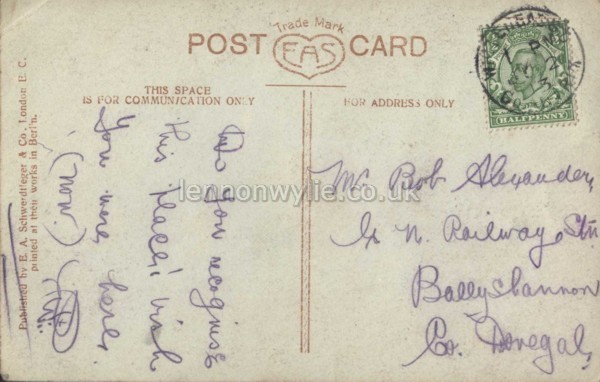 Trade Mark
POST CARD
EAS
THIS SPACE
IS FOR COMMUNICATION ONLY
FOR ADDRESS ONLY
HALFPENNY
Do you recognise
this place? Wish
you were here
(now.)
Mr. Bob Alexander,
G. N. Railway Stn
Ballyshannon
Co. Donegal,
Published by E. A. Schwerdtfeger & Co., London E. C.
printed at their works in Berlin.
lennonwylie.co.uk